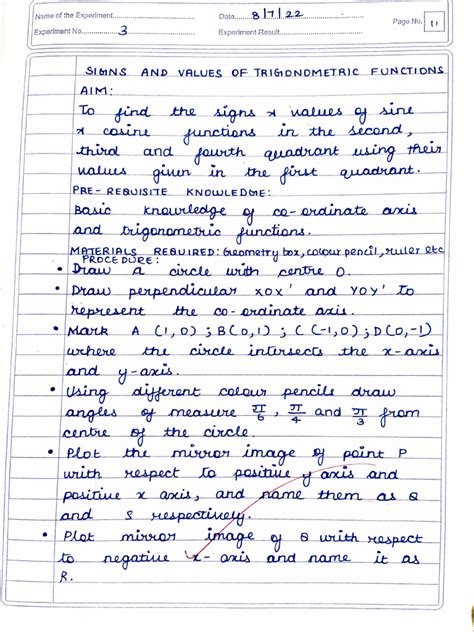 Name of the Experiment Date 8/7/22
Page No. 11
Experiment No. 3 Experiment Result
SIGNS AND VALUES OF TRIGONOMETRIC FUNCTIONS
AIM:
To find the signs & values of sine
& cosine functions in the second,
third and fourth quadrant using their
values given in the first quadrant.
PRE-REQUISITE KNOWLEDGE:
Basic knowledge of co-ordinate axis
and trigonometric functions.
MATERIALS REQUIRED: Geometry box, colour pencil, ruler etc
PROCEDURE:
• Draw a circle with centre O.
• Draw perpendicular XOX' and YOY' to
represent the co-ordinate axis.
• Mark A (1,0) ; B(0,1) ; C (-1,0) ; D(0,-1)
where the circle intersects the x-axis
and y-axis.
• Using different colour pencils draw
angles of measure π/6, π/4 and π/3 from
centre of the circle.
• Plot the mirror image of point P
with respect to positive y axis and
positive x axis, and name them as Q
and S respectively.
• Plot mirror image of Q with respect
to negative x-axis and name it as
R.